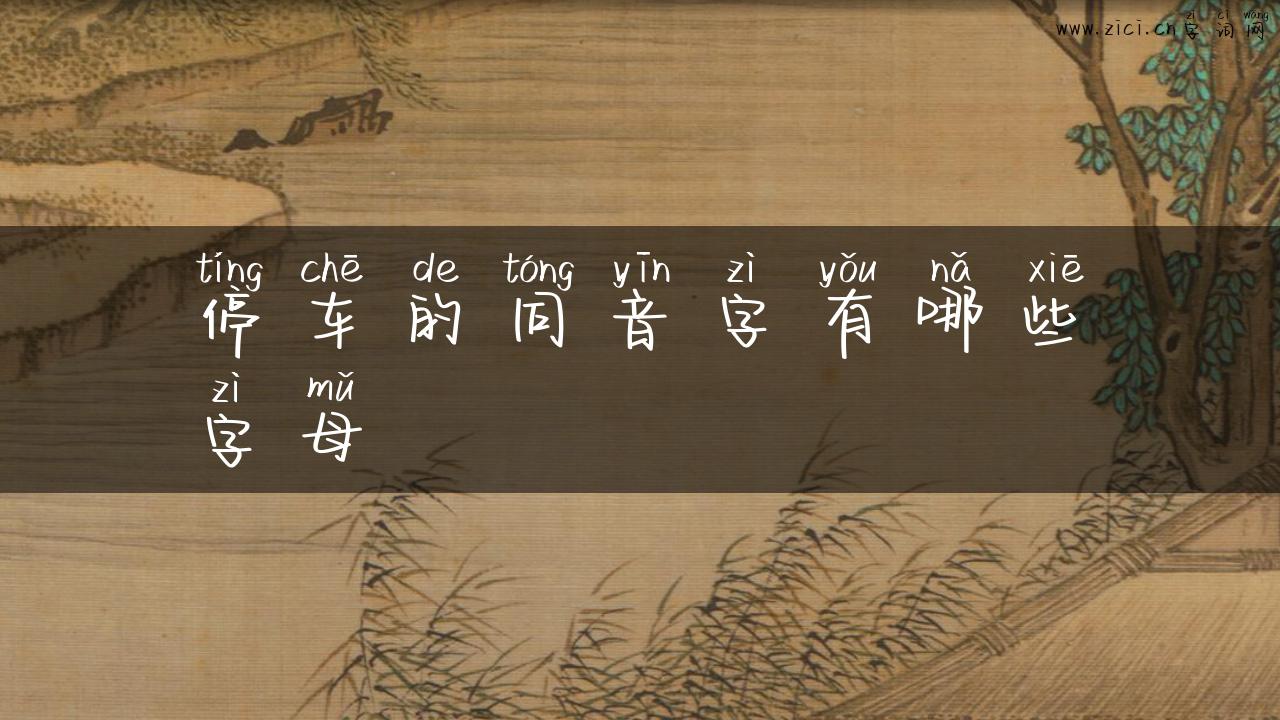 zì cí wǎng
www.zici.cn 字词网
tíng chē de tóng yīn zì yǒu nǎ xiē
停车的同音字有哪些
zì mǔ
字母